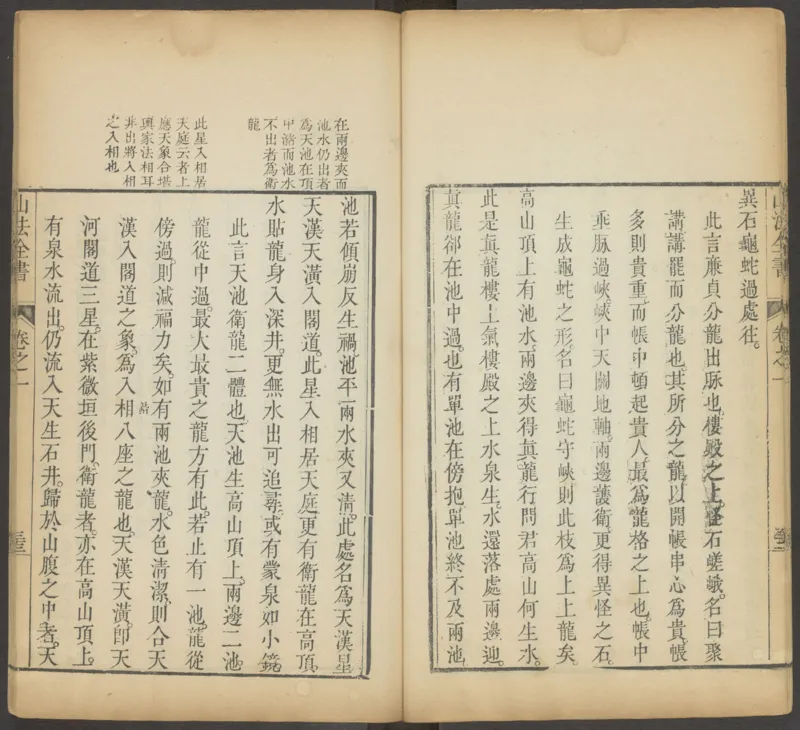 異石龜蛇過處往。
此言廉貞分龍出脉也。樓殿之上。怪石嵯峨。名曰聚
講。講罷而分龍也。其所分之龍。以開帳串心爲貴。帳
多則貴重。而帳中頓起貴人。最爲龍格之上也。帳中
乖脉過峽。峽中天關地軸。兩邊護衛。更得異怪之石。
生成龜蛇之形。名曰龜蛇守峽。則此枝爲上上龍矣。
高山頂上有池水。兩邊夾得眞龍行。問君高山何生水。
此是眞龍樓上氣。樓殿之上水泉生。水還落處兩邊迎。
眞龍卻在池中過。也有單池在傍抱。單池終不及兩池。
山法全書
卷之一
在兩邊夾而
池水仍出者
爲天池在頂
中瀦而池水
不出者爲衛
龍
此星入相居
天庭云者上
應天象合堪
輿家法相耳
非出將入相
之入相也
池若傾崩反生禍。池平兩水夾又清。此處名爲天漢星。
天漢天潢入閣道。此星入相居天庭。更有衛龍在高頂。
水貼龍身入深井。更無水出可追尋。或有蒙泉如小鏡。
此言天池衛龍二體也。天池生高山頂上。兩邊二池。
龍從中過。最大最貴之龍方有此。若止有一池。龍從
傍過。則減福力矣。如有兩池夾龍。水色清潔。則合天
漢入閣道之象。爲入相八座之龍也。天漢天潢。卽天
河閣道三星。在紫微垣後門。衛龍者。亦在高山頂上。
有泉水流出。仍流入天生石井。歸於山腹之中者。天
山法全書
卷之一